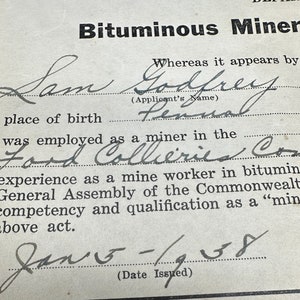 Bituminous Miner
Whereas it appears by
Sam Godfrey
(Applicant's Name)
place of birth Penna
was employed as a miner in the
Ford Collieries Co
experience as a mine worker in bitumin
General Assembly of the Commonwealt
competency and qualification as a "min
above act.
Jan 5-1938
(Date Issued)